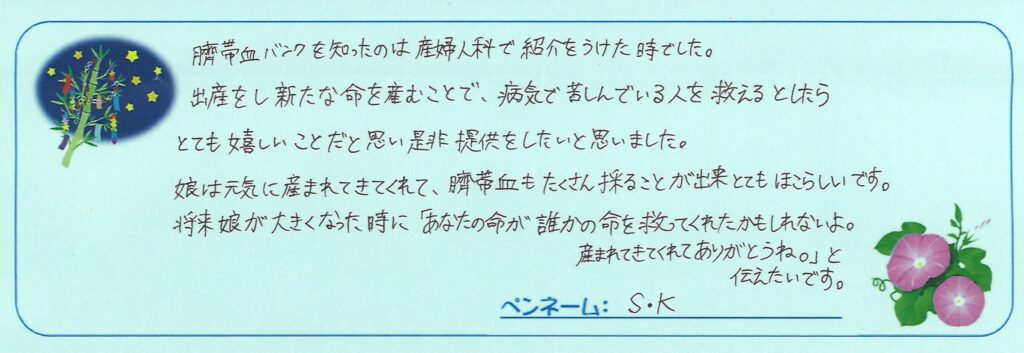 臍帯血バンクを知ったのは産婦人科で紹介をうけた時でした。
出産をし新たな命を産むことで、病気で苦しんでいる人を救えるとしたら
とても嬉しいことだと思い是非提供をしたいと思いました。
娘は元気に産まれてきてくれて、臍帯血もたくさん採ることが出来とてもほこらしいです。
将来娘が大きくなった時に「あなたの命が誰かの命を救ってくれたかもしれないよ。
産まれてきてくれてありがとうね。」と
伝えたいです。
ペンネーム: S・K